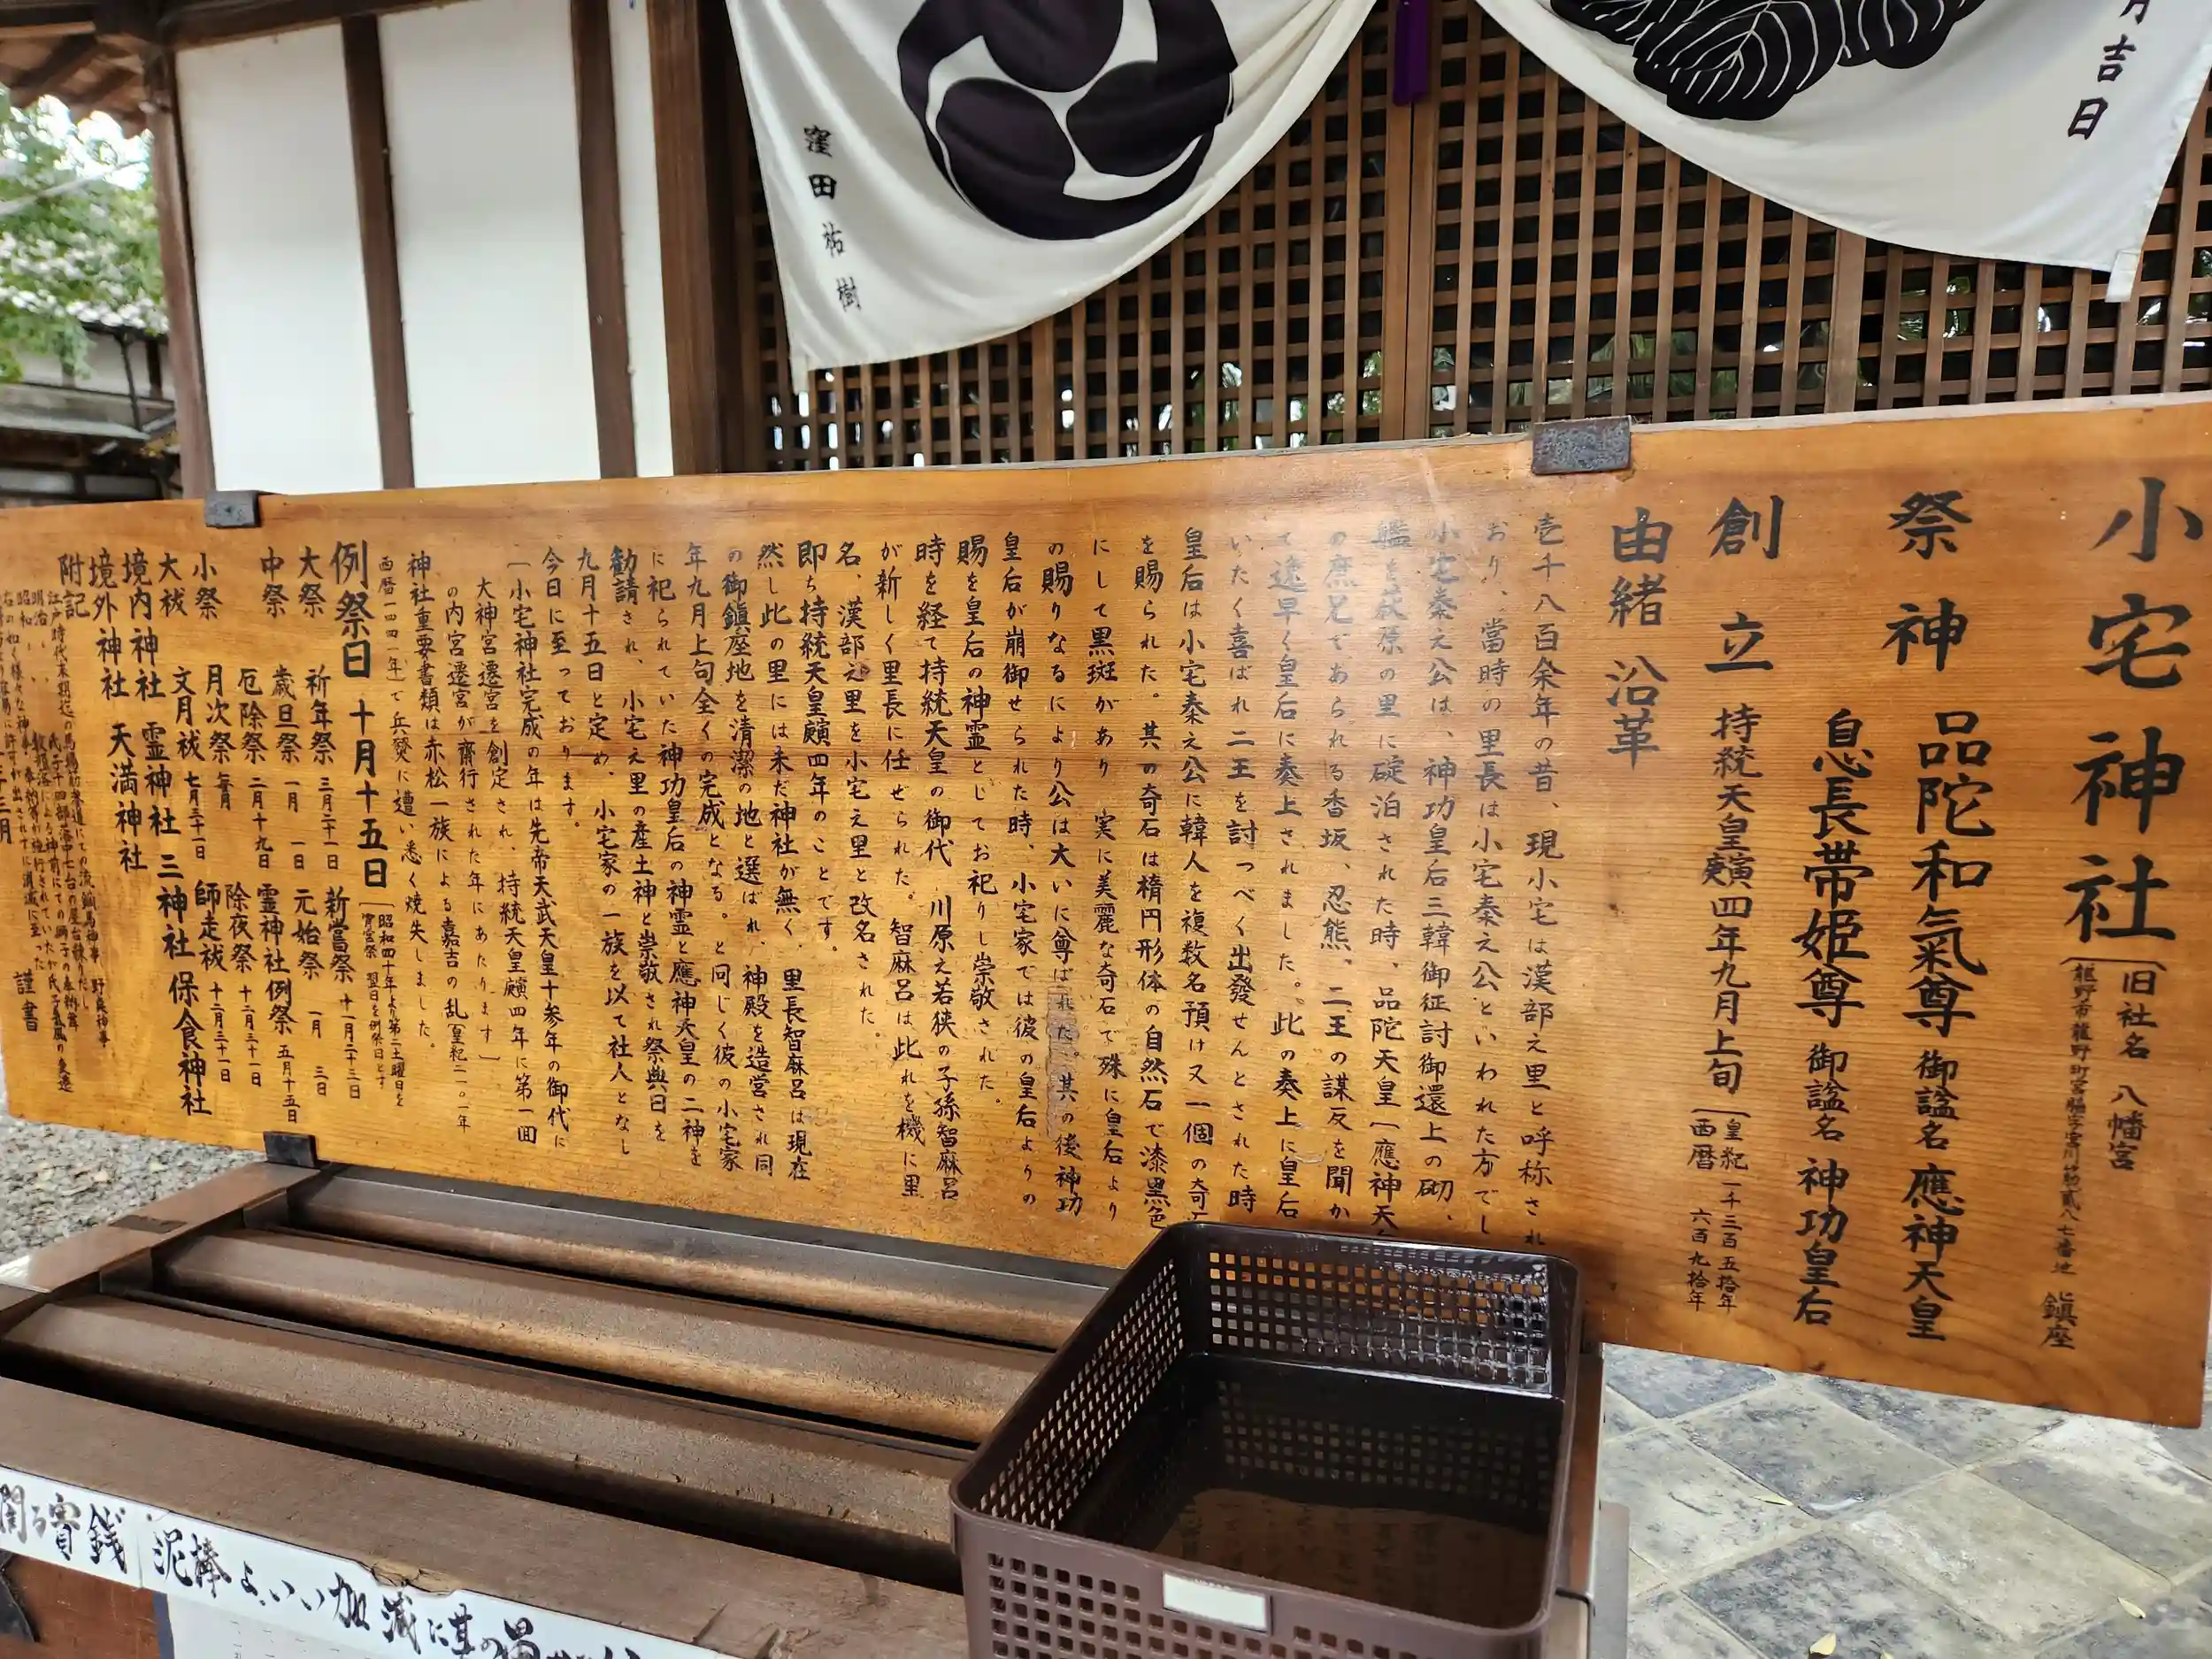 月吉日
窪田祐樹
小宅神社
旧社名 八幡宮
龍野市龍野町宮脇字宮川筋貳八七番地 鎮座
祭神 品陀和氣尊 御諡名 應神天皇
息長帯姫尊 御諡名 神功皇后
創立 持統天皇廎四年九月上旬
皇紀一千三百五拾年
西暦 六百九拾年
由緒 沿革
壱千八百余年の昔、現小宅は漢部之里と呼称され
おり、當時の里長は小宅秦之公といわれた方でし
小宅秦之公は、神功皇后三韓御征討御還上の砌、
艦を荻原の里に碇泊された時、品陀天皇〔應神天
の庶兄であられる香坂、忍熊、二王の謀反を聞か
て逸早く皇后に奏上されました。此の奏上に皇后
いたく喜ばれ二王を討つべく出發せんとされた時
皇后は小宅秦之公に韓人を複数名預け又一個の奇
を賜られた。其の奇石は楕円形体の自然石で漆黒色
にして黒斑があり 実に美麗な奇石で殊に皇后より
の賜りなるにより公は大いに尊ばれた。其の後神功
皇后が崩御せられた時、小宅家では彼の皇后よりの
賜を皇后の神霊としてお祀りし崇敬された。
時を経て持統天皇の御代 川原之若狭の子孫智麻呂
が新しく里長に任ぜられた。智麻呂は此れを機に里
名、漢部之里を小宅之里と改名された。
即ち持統天皇廎四年のことです。
然し此の里には未だ神社が無く、里長智麻呂は現在
の御鎮座地を清潔の地と選ばれ、神殿を造営され同
年九月上旬全くの完成となる。と同じく彼の小宅家
に祀られていた神功皇后の神霊と應神天皇の二神を
勧請され、小宅之里の産土神と崇敬され祭典日を
九月十五日と定め、小宅家の一族を以て社人となし
今日に至っております。
〔小宅神社完成の年は先帝天武天皇十参年の御代に
大神宮遷宮を創定され、持統天皇廎四年に第一回
の内宮遷宮が齋行された年にあたります〕
神社重要書類は赤松一族による嘉吉の乱〔皇紀二一〇一年
西暦一四四一年〕で兵燹に遭い悉く焼失しました。
例祭日 十月十五日
昭和四十年より第二土曜日を
宵宮祭 翌日を例祭日とす
大祭 祈年祭 三月二十一日 新嘗祭 十一月二十三日
中祭 歳旦祭 一月 一日 元始祭 一月 三日
厄除祭 二月十九日 霊神社例祭 五月十五日
小祭 月次祭 毎月 除夜祭 十二月三十一日
大祓 文月祓 七月三十一日 師走祓 十二月三十一日
境内神社 霊神社 三神社 保食神社
境外神社 天満神社
附記
謹書
賽銭
泥棒よいい加減に